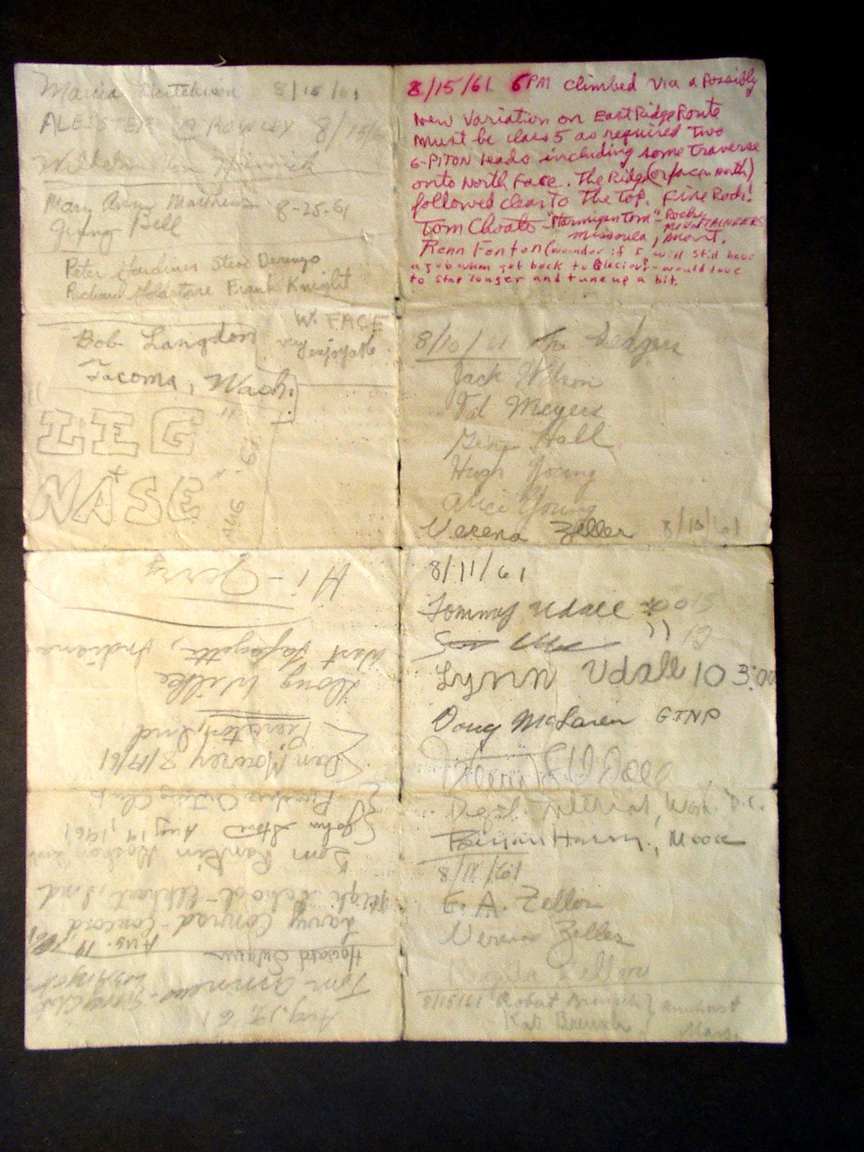 Marcia Hutchison 8/15/61
ALEISTER CROWLEY 8/15/61
Mary Anne Matthews 8-25-61
Ginny Bell
Peter Gardiner Steve Derenzo
Richard Goldstone Frank Knight
W. FACE
very enjoyable
Bob Langdon
Tacoma, Wash.
LEG
NASE
8/15/61 6PM climbed via a Possibly
New Variation on East Ridge Route
Must be class 5 as required Two
6-PITON leads including some traverse
onto North Face. The Ridge (or face north)
followed clear to the Top. Fine Rock!
Tom Choate "Ptarmigan Tom" - Rocky MOUNTAINEERS
Missoula, Mont.
Renn Fenton (wonder if I will still have
a job when get back to Glacier - would love
to stay longer and tune up a bit.
8/10/61 The Sedgers
Jack Wilson
Ed Meyers
Gene Hall
Hugh Young
Alice Young
Verena Zeller 8/10/61
8/11/61
Tommy Udall
Lynn Udall 10 3:00
Doug McLaren GTNP
Dept. Interior, Wash. D.C.
8/11/61
E. A. Zeller
Verena Zeller
8/15/61 Robert Breusch } Amherst
Kate Breusch } Mass.
Aug. 19, '61
Tom
Sierra Club
Los Angeles
Howard
Aug. 19, '61
Larry Conrad - Concord
High School - Elkhart, Ind
Tom Rankin
John Aug 19, 1961
Purdue Outing Club
Dan Mowrey 8/19/61
Pierceton, Ind
Doug Wilke
West Lafayette, Indiana
Hi - Gerry